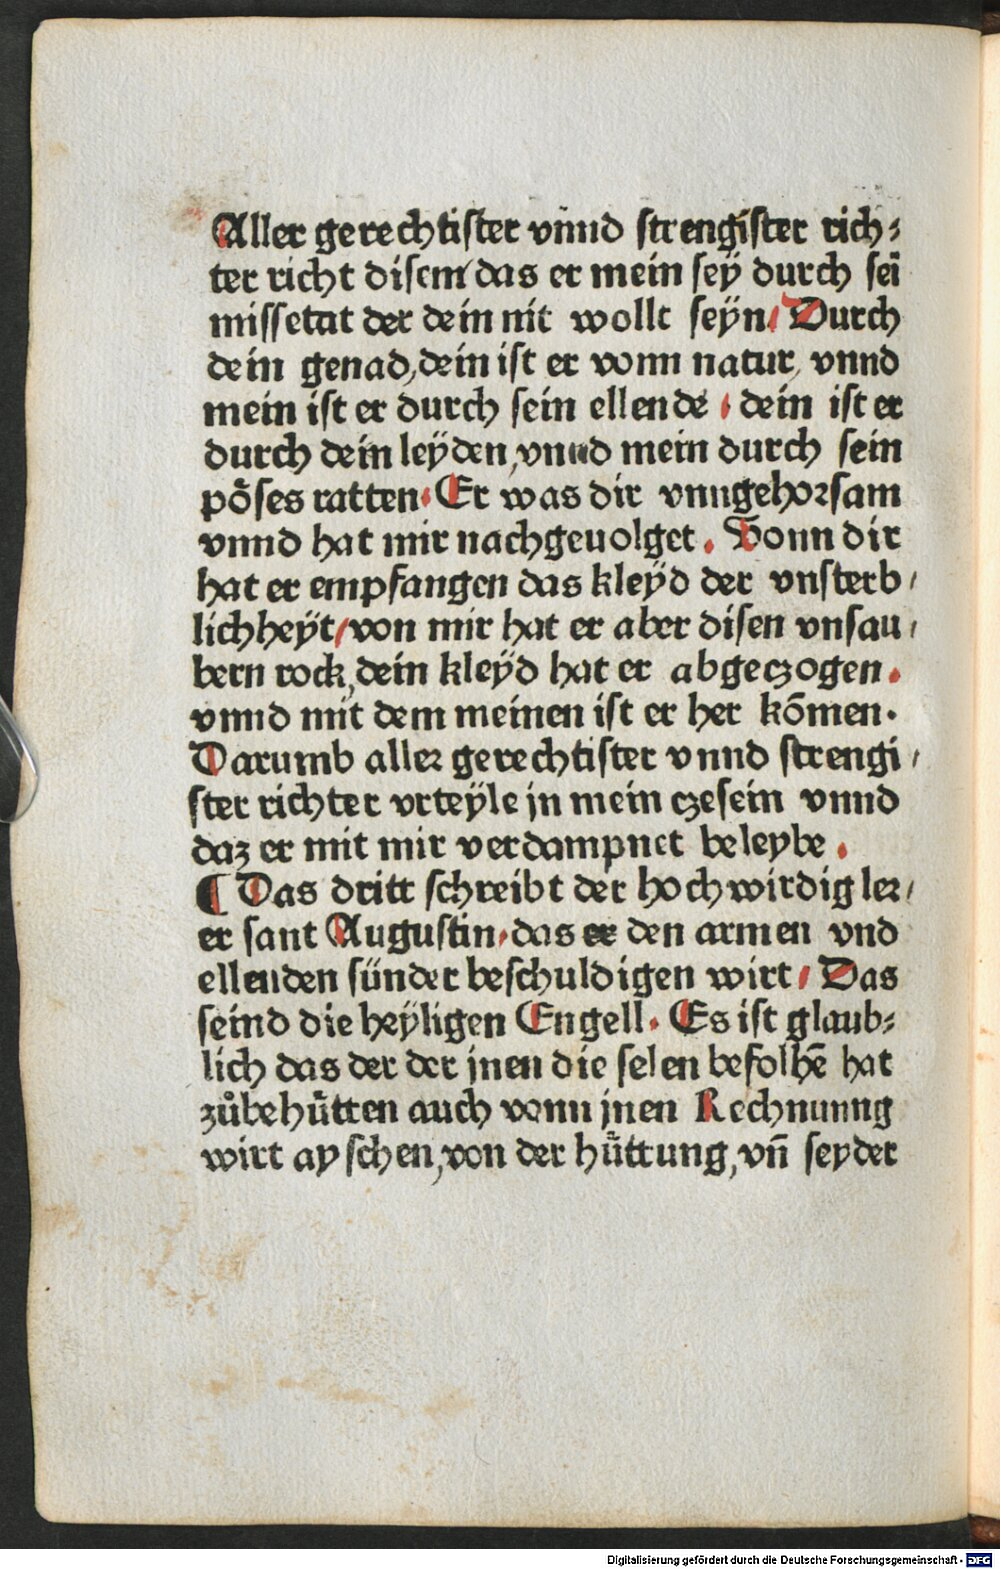 Aller gerechtister vnnd strengister rich⸗
ter richt disem/das er mein sey durch sei
missetat der dein nit wollt seÿn/ Durch
dein genad,dein ist er vonn natur, vnnd
mein ist er durch sein ellende / dein ist er
durch dein leÿden,vnnd mein durch sein
põses ratten. Er was dir vnngehorsam
vnnd hat mir nachgeuolget. Vonn dir
hat er empfangen das kleÿd der vnsterb/
lichheÿt/von mir hat er aber disen vnsau/
bern rock,dein kleÿd hat er abgeczogen.
vnnd mit dem meinen ist er her kõmen.
Darumb aller gerechtister vnnd strengi/
ster richter vrteÿle jn mein czesein vnnd
daz er mit mir verdampnet beleybe.
¶ Das dritt schreibt der hochwirdig ler/
er sant Augustin,das er den armen vnd
ellenden sünder beschuldigen wirt/ Das
seind die heÿligen Engell. Es ist glaub⸗
lich das der der jnen die selen befolhē hat
zůbehütten auch vonn jnen Rechnunng
wirt ayschen,von der hüttung,vñ seyder
Digitalisierung gefördert durch die Deutsche Forschungsgemeinschaft - DFG